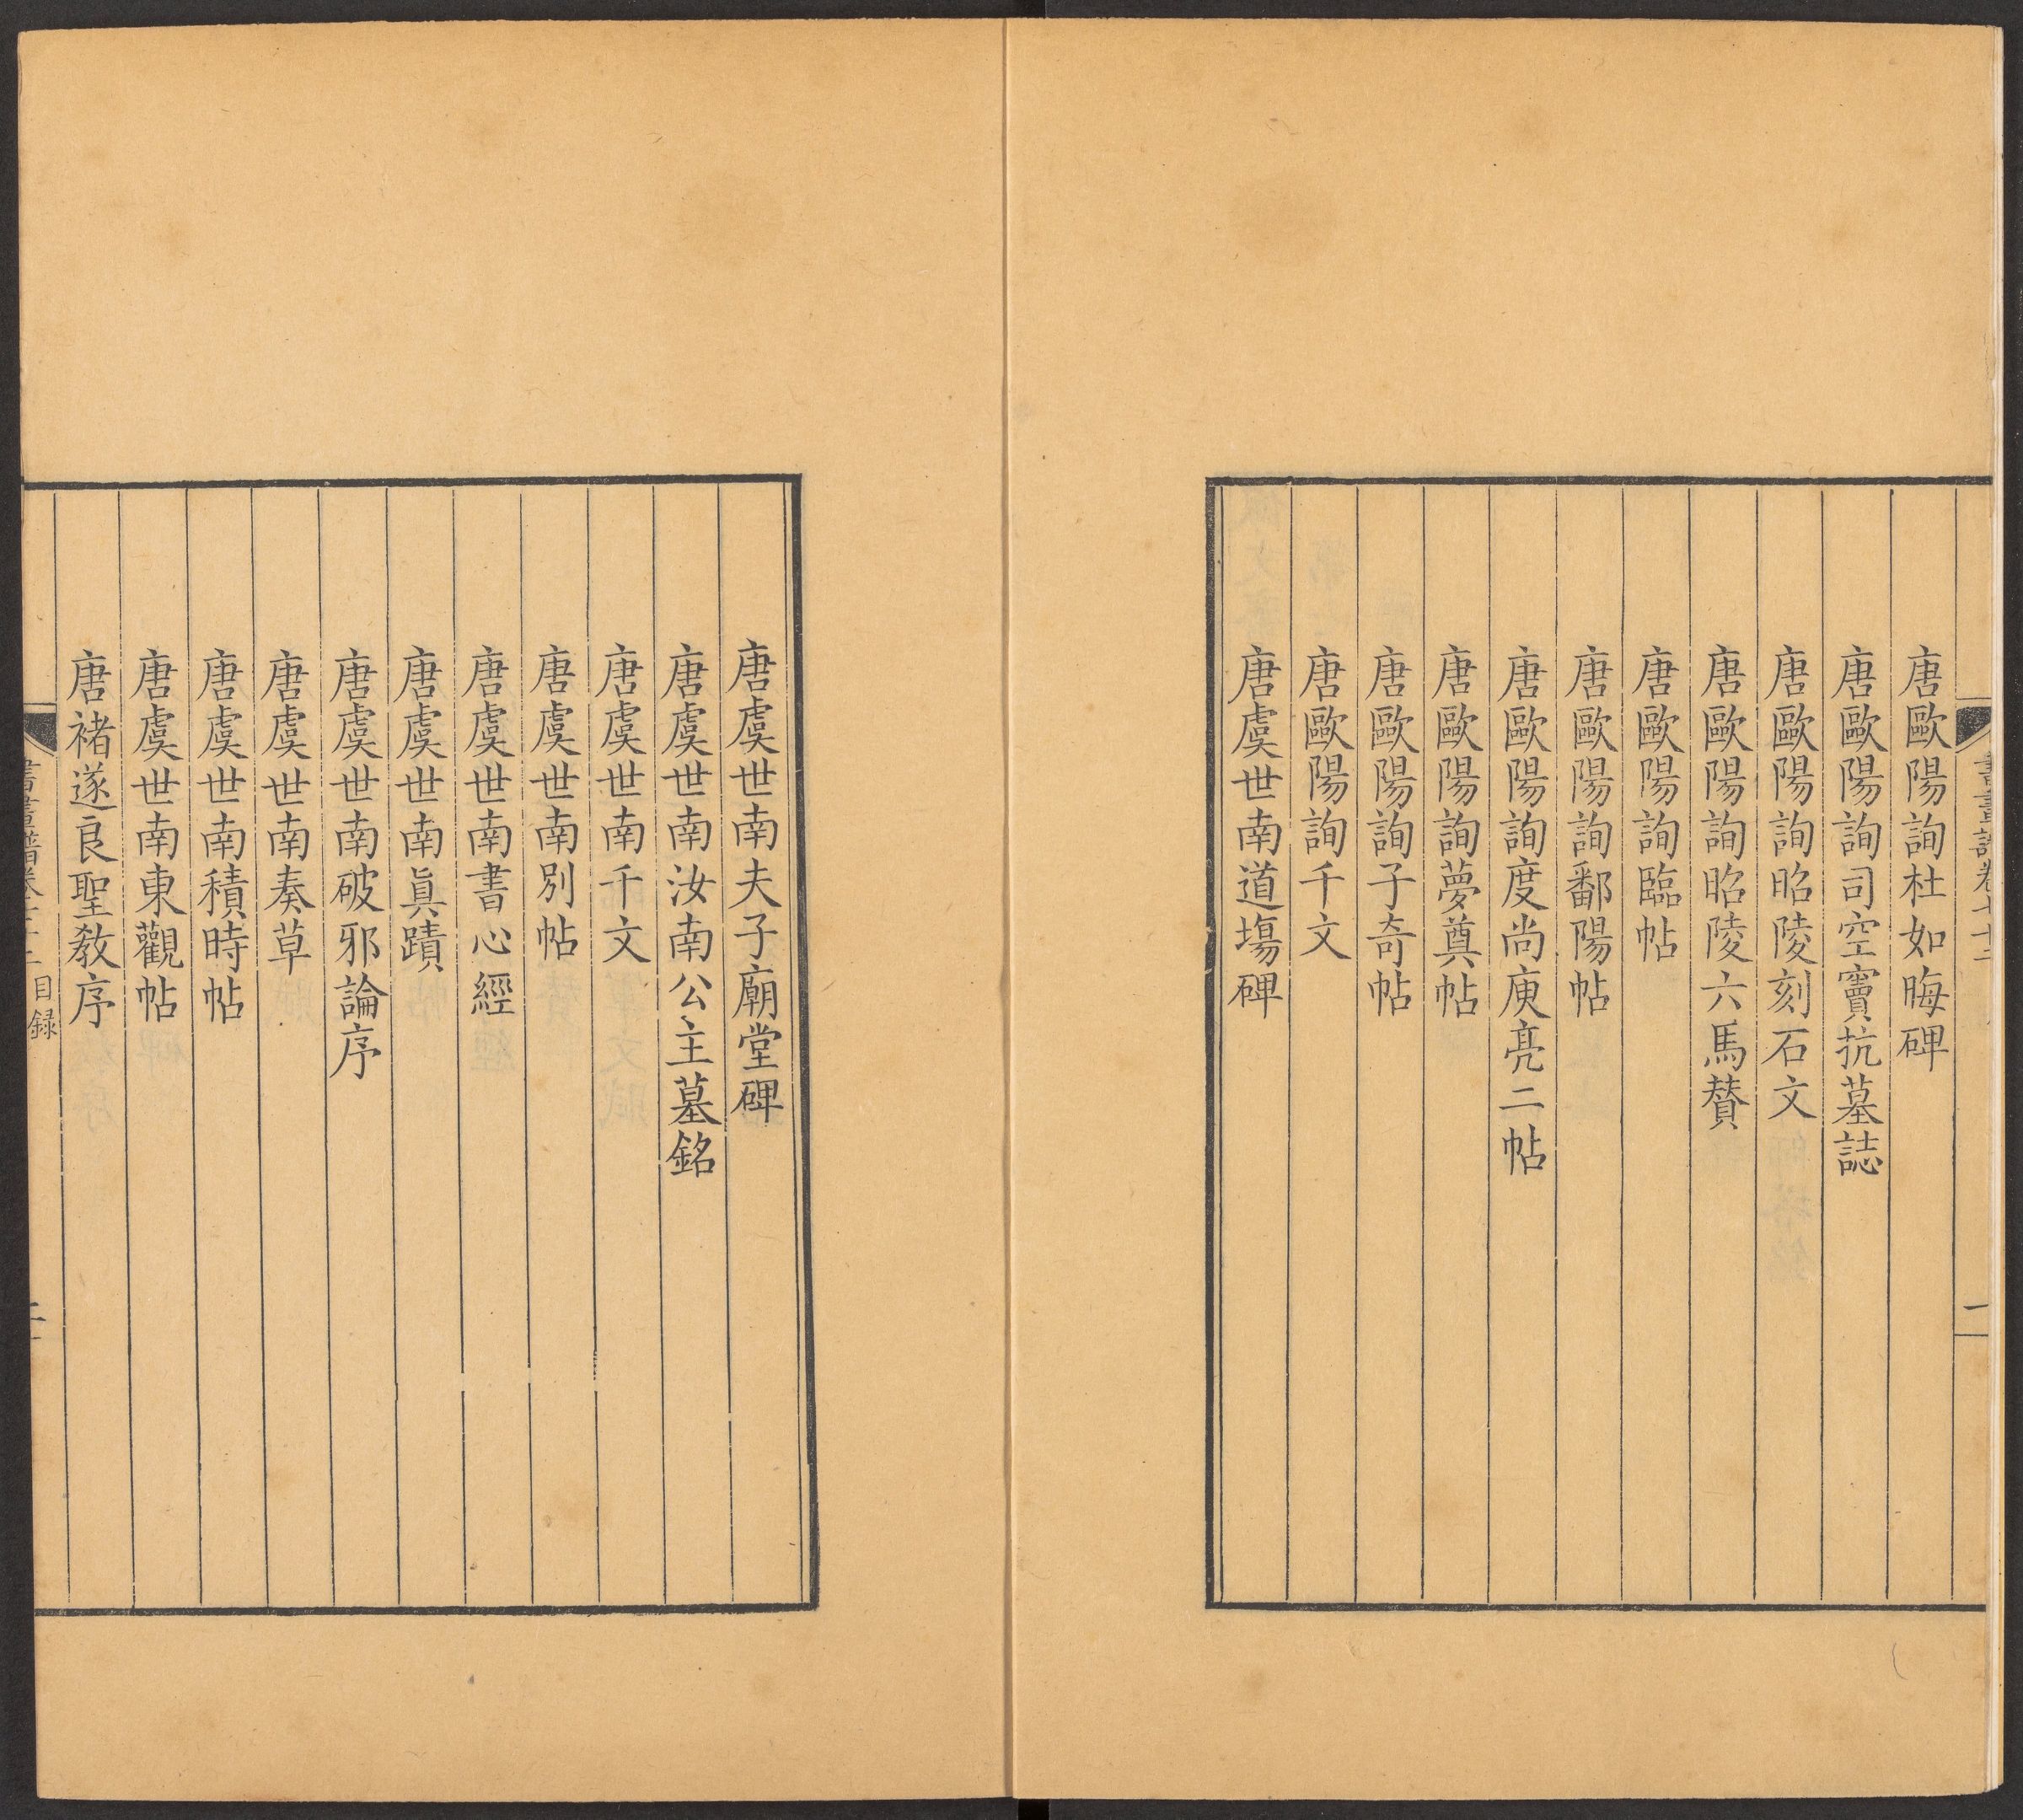 唐歐陽詢杜如晦碑
唐歐陽詢司空竇抗墓誌
唐歐陽詢昭陵刻石文
唐歐陽詢昭陵六馬賛
唐歐陽詢臨帖
唐歐陽詢鄱陽帖
唐歐陽詢度尚庾亮二帖
唐歐陽詢夢奠帖
唐歐陽詢子奇帖
唐歐陽詢千文
唐虞世南道塲碑
唐虞世南夫子廟堂碑
唐虞世南汝南公主墓銘
唐虞世南千文
唐虞世南別帖
唐虞世南書心經
唐虞世南眞蹟
唐虞世南破邪論序
唐虞世南奏草
唐虞世南積時帖
唐虞世南東觀帖
唐褚遂良聖敎序
目録